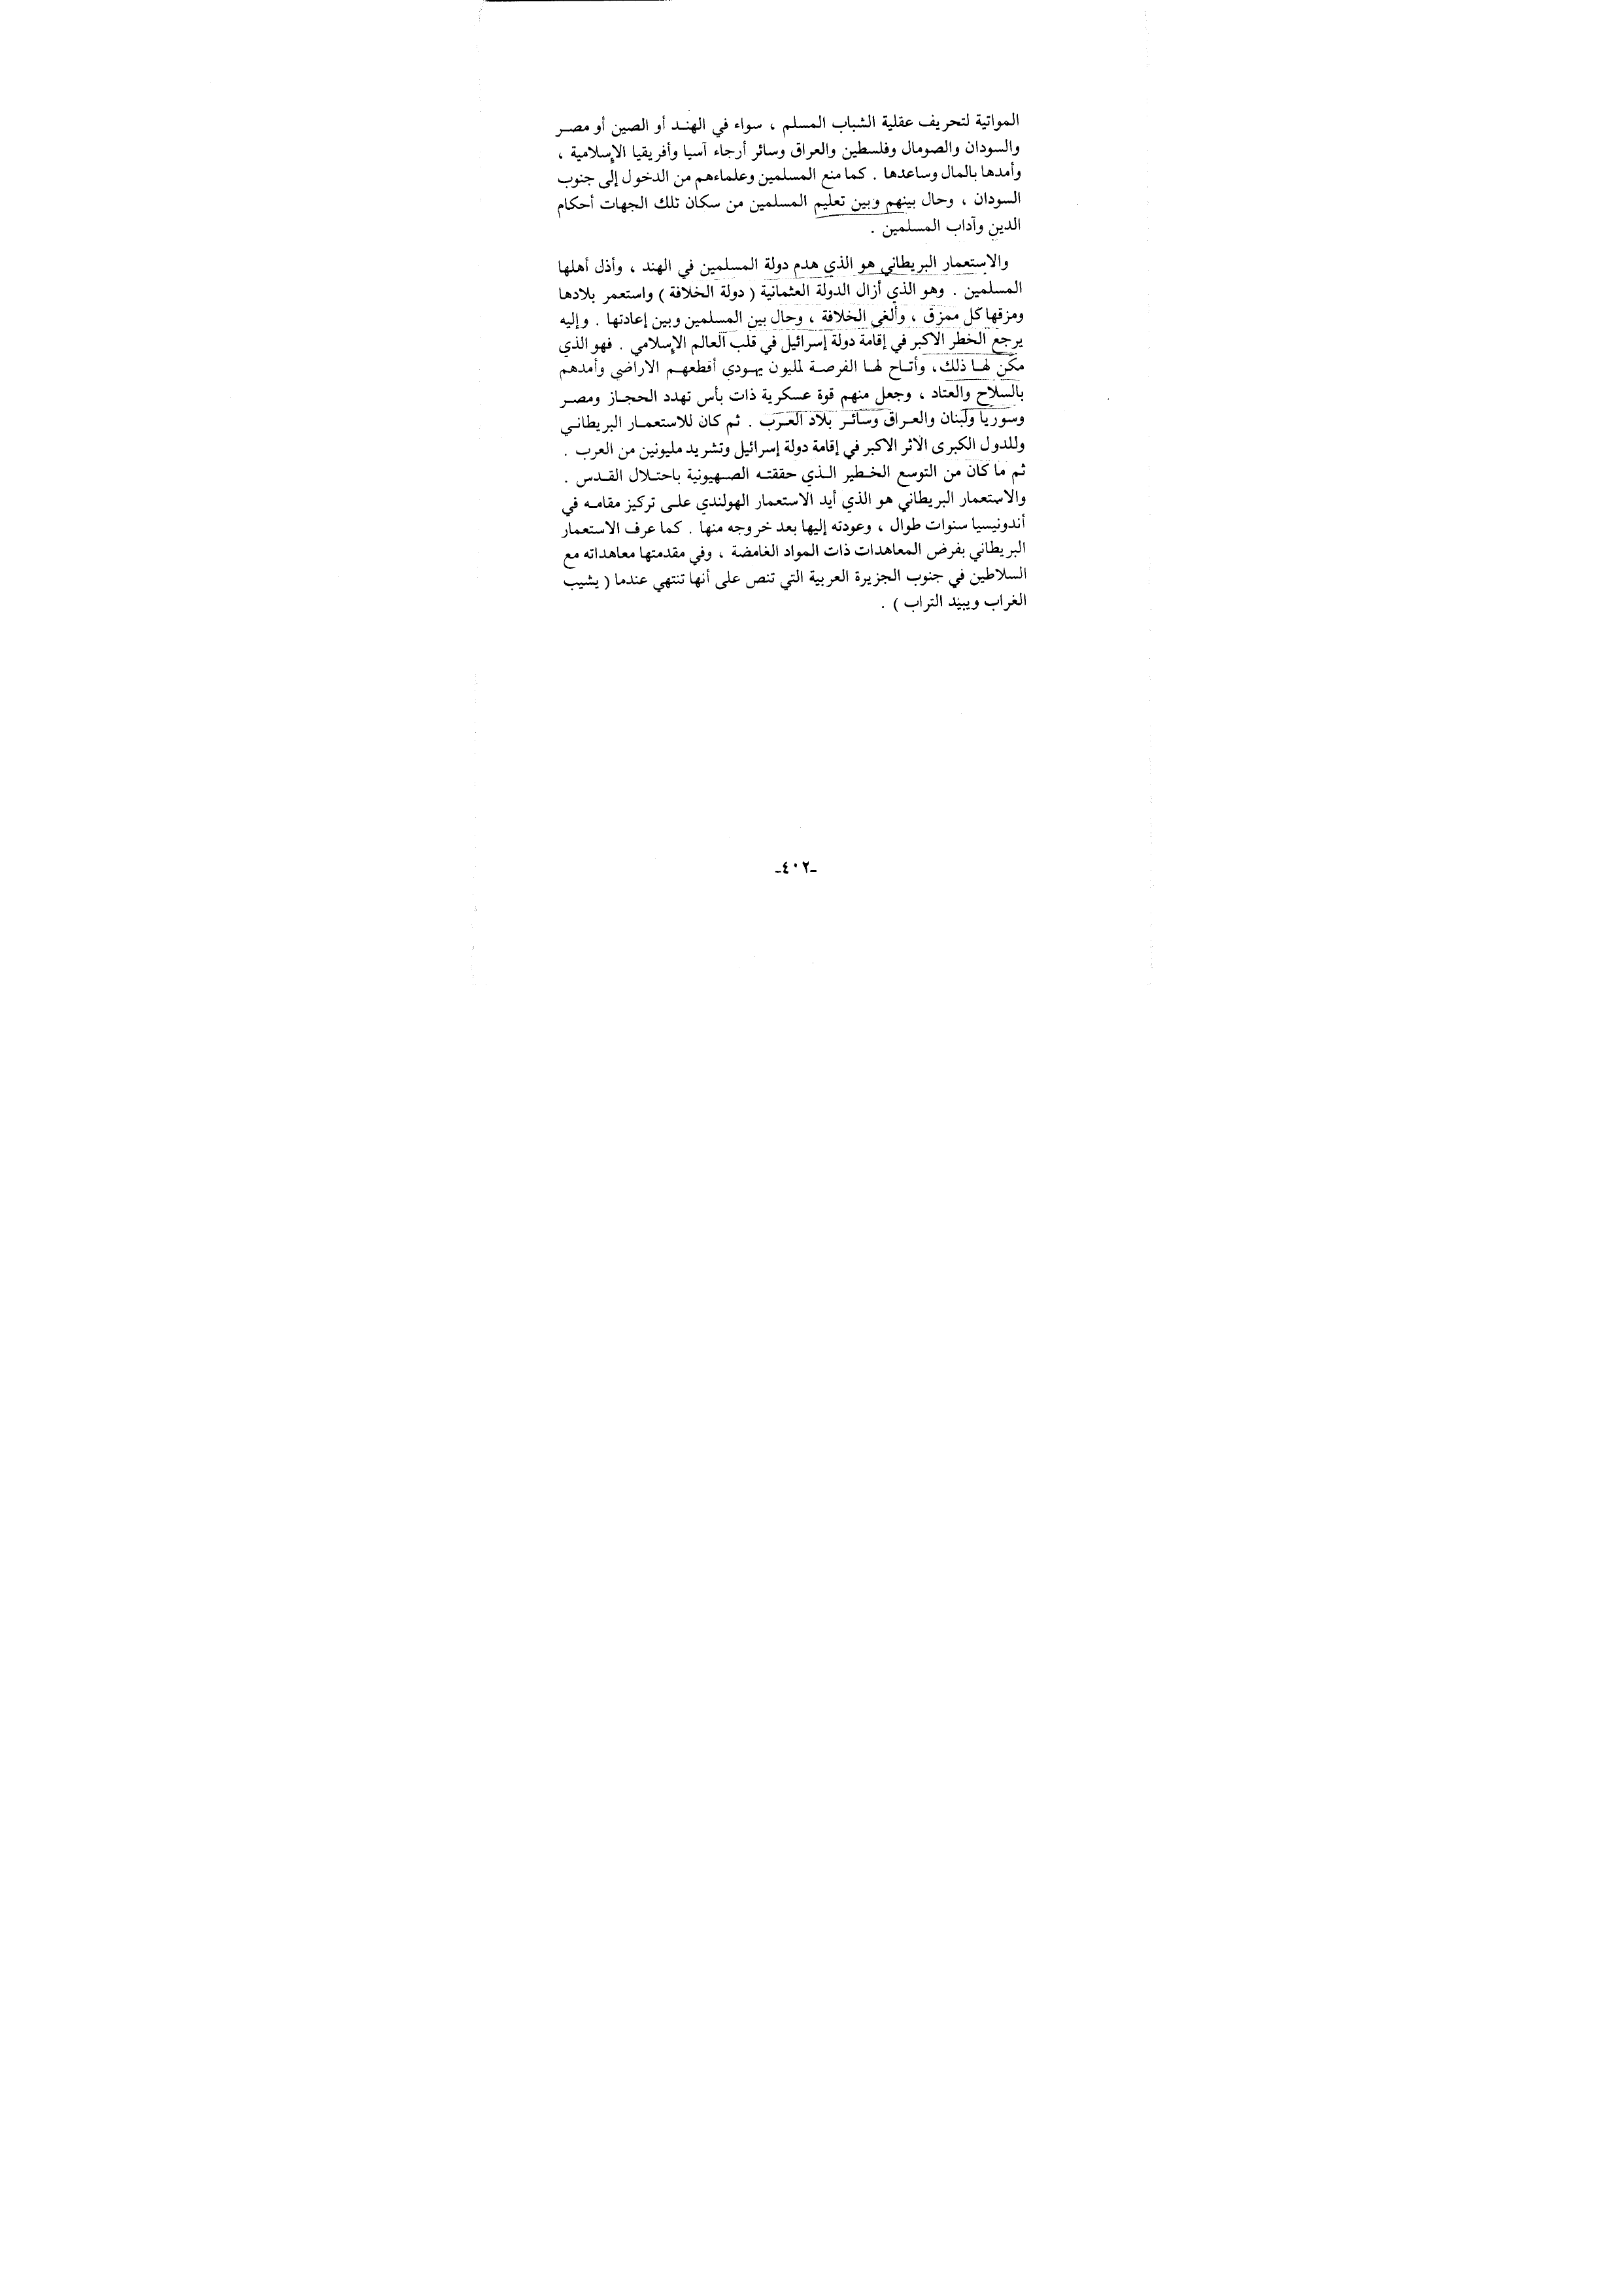 المواتية لتحريف عقلية الشباب المسلم ، سواء في الهند أو الصين أو مصر
والسودان والصومال وفلسطين والعراق وسائر أرجاء آسيا وأفريقيا الإسلامية ،
وأمدها بالمال وساعدها . كما منع المسلمين وعلماءهم من الدخول إلى جنوب
السودان ، وحال بينهم وبين تعليم المسلمين من سكان تلك الجهات أحكام
الدين وآداب المسلمين .
والاستعمار البريطاني هو الذي هدم دولة المسلمين في الهند ، وأذل أهلها
المسلمين . وهو الذي أزال الدولة العثمانية ( دولة الخلافة ) واستعمر بلادها
ومزقها كل ممزق ، وألغى الخلافة ، وحال بين المسلمين وبين إعادتها . وإليه
يرجع الخطر الاكبر في إقامة دولة إسرائيل في قلب العالم الإسلامي . فهو الذي
مكّن لها ذلك، وأتاح لها الفرصة لمليون يهودي أقطعهم الاراضي وأمدهم
بالسلاح والعتاد ، وجعل منهم قوة عسكرية ذات بأس تهدد الحجاز ومصر
وسوريا ولبنان والعراق وسائر بلاد العرب . ثم كان للاستعمار البريطاني
وللدول الكبرى الاثر الاكبر في إقامة دولة إسرائيل وتشريد مليونين من العرب .
ثم ما كان من التوسع الخطير الذي حققته الصهيونية باحتلال القدس .
والاستعمار البريطاني هو الذي أيد الاستعمار الهولندي على تركيز مقامه في
أندونيسيا سنوات طوال ، وعودته إليها بعد خروجه منها . كما عرف الاستعمار
البريطاني بفرض المعاهدات ذات المواد الغامضة ، وفي مقدمتها معاهداته مع
السلاطين في جنوب الجزيرة العربية التي تنص على أنها تنتهي عندما ( يشيب
الغراب ويبيد التراب ) .
-٤٠٢-